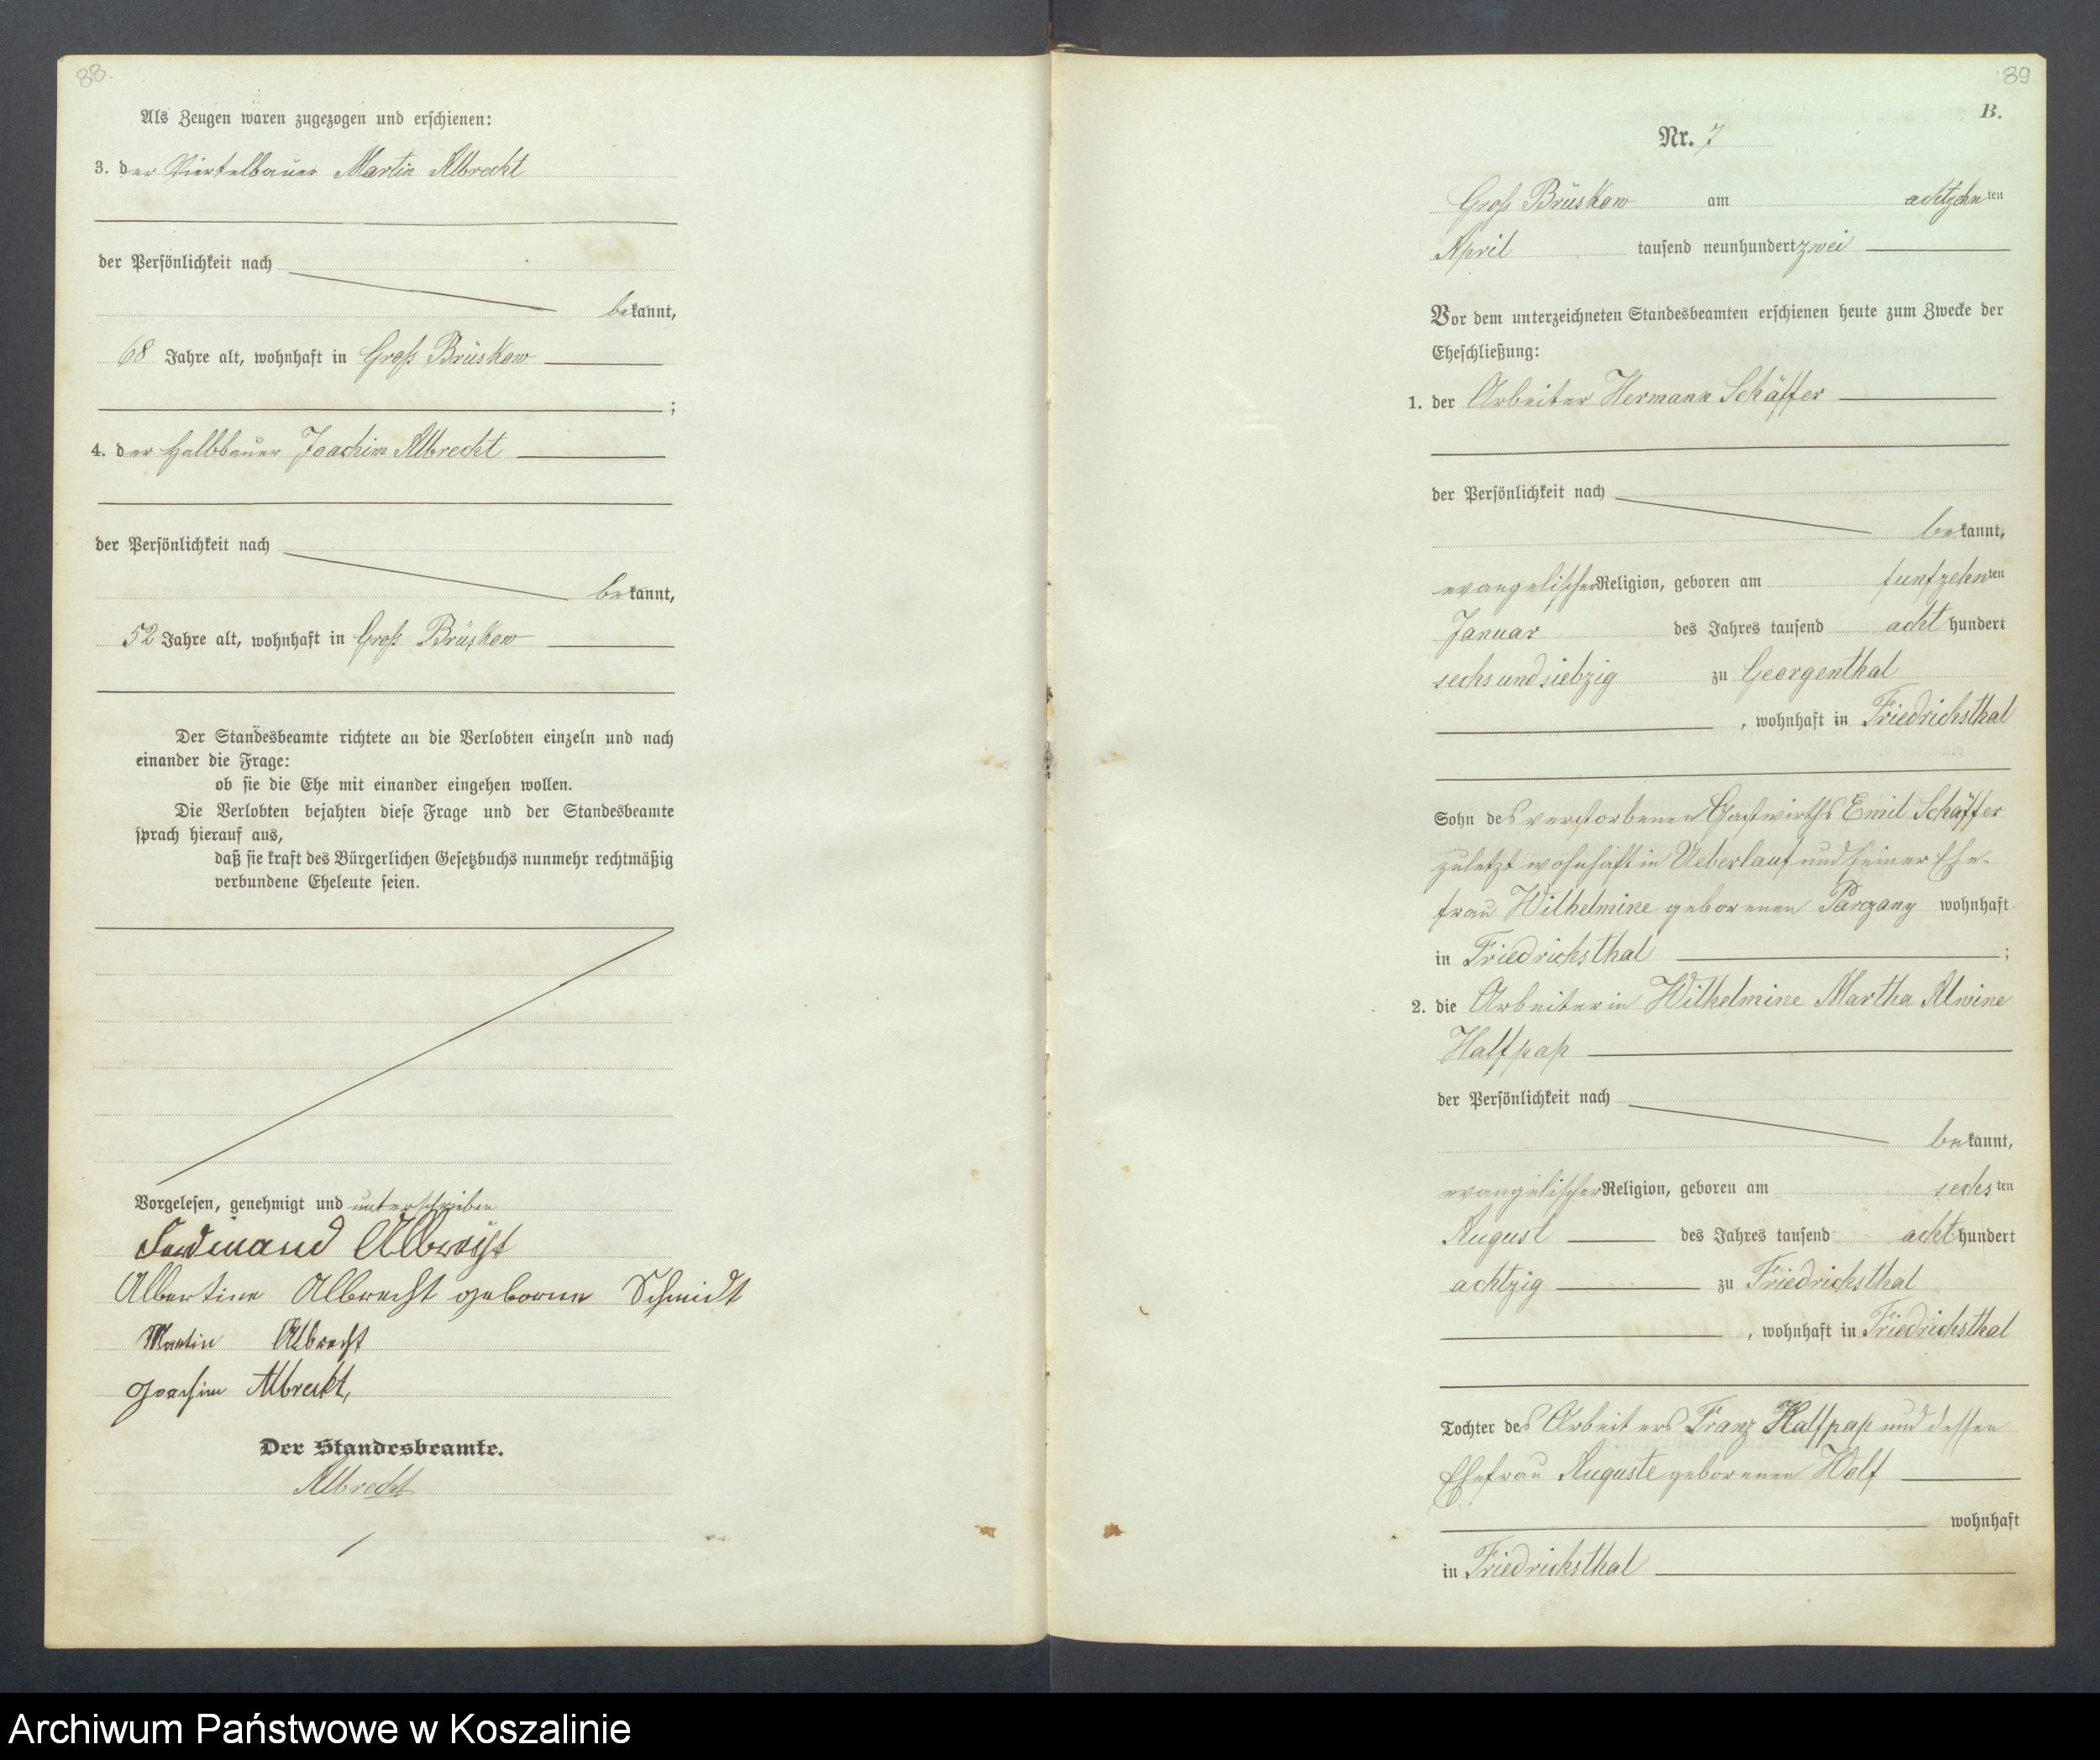 88.
Als Zeugen waren zugezogen und erschienen:
3. der Viertelbauer Martin Albrecht
der Persönlichkeit nach
bekannt,
68 Jahre alt, wohnhaft in Groß Brüskow
;
4. der Halbbauer Joachim Albrecht
der Persönlichkeit nach
bekannt,
52 Jahre alt, wohnhaft in Groß Brüskow
Der Standesbeamte richtete an die Verlobten einzeln und nach
einander die Frage:
ob sie die Ehe mit einander eingehen wollen.
Die Verlobten bejahten diese Frage und der Standesbeamte
sprach hierauf aus,
daß sie kraft des Bürgerlichen Gesetzbuchs nunmehr rechtmäßig
verbundene Eheleute seien.
Vorgelesen, genehmigt und unterschrieben
Ferdinand Albrecht
Albertine Albrecht geborene Schmidt
Martin Albrecht
Joachim Albrecht,
Der Standesbeamte.
Albrecht
89
B.
Nr. 7
Groß Brüskow am achtzehnten
April tausend neunhundert zwei
Vor dem unterzeichneten Standesbeamten erschienen heute zum Zwecke der
Eheschließung:
1. der Arbeiter Hermann Schäffer
der Persönlichkeit nach
bekannt,
evangelischer Religion, geboren am funfzehnten
Januar des Jahres tausend acht hundert
sechs und siebzig zu Georgenthal
, wohnhaft in Friedrichsthal
Sohn des verstorbenen Gastwirths Emil Schäffer
zuletzt wohnhaft in Ueberlauf und seiner Ehe-
frau Wilhelmine geborenen wohnhaft
in Friedrichsthal ;
2. die Arbeiterin Wilhelmine Martha Alwine
Halfpap
der Persönlichkeit nach
bekannt,
evangelischer Religion, geboren am sechsten
August des Jahres tausend acht hundert
achtzig zu Friedrichsthal
, wohnhaft in Friedrichsthal
Tochter des Arbeiters Franz Halfpap und dessen
Ehefrau Auguste geborenen Wolf
wohnhaft
in Friedrichsthal
Archiwum Państwowe w Koszalinie